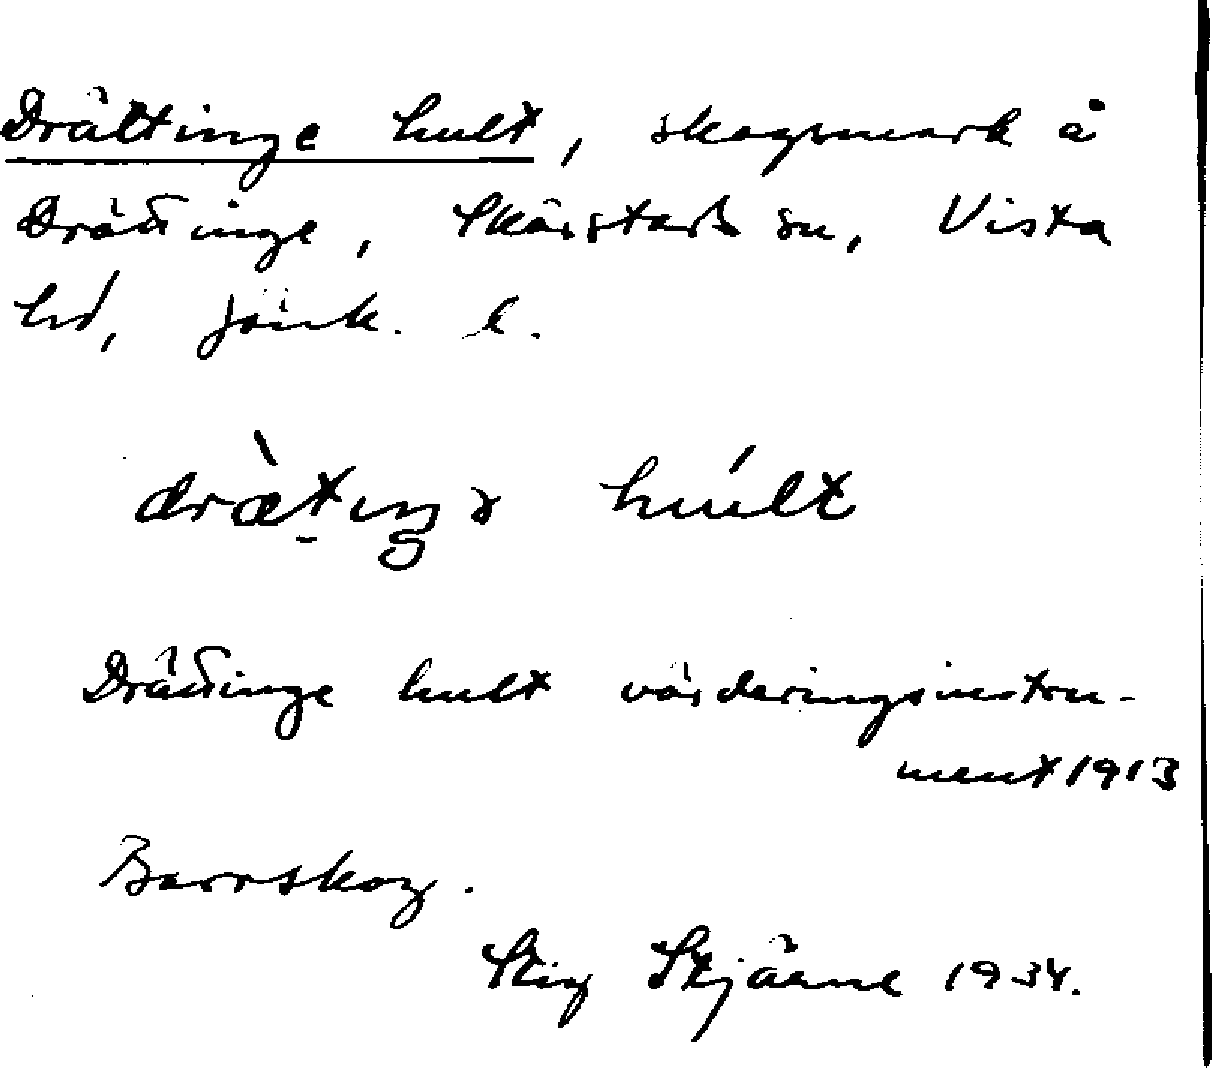 Drättinge hult, skogsmark å
Drättinge, Skärstads sn, Vista
hd, Jönk. l.
dræ̀t̠iŋə húlt
Drättinge hult värderingsinstru-
ment 1913
Barrskog.
Stig
1934.